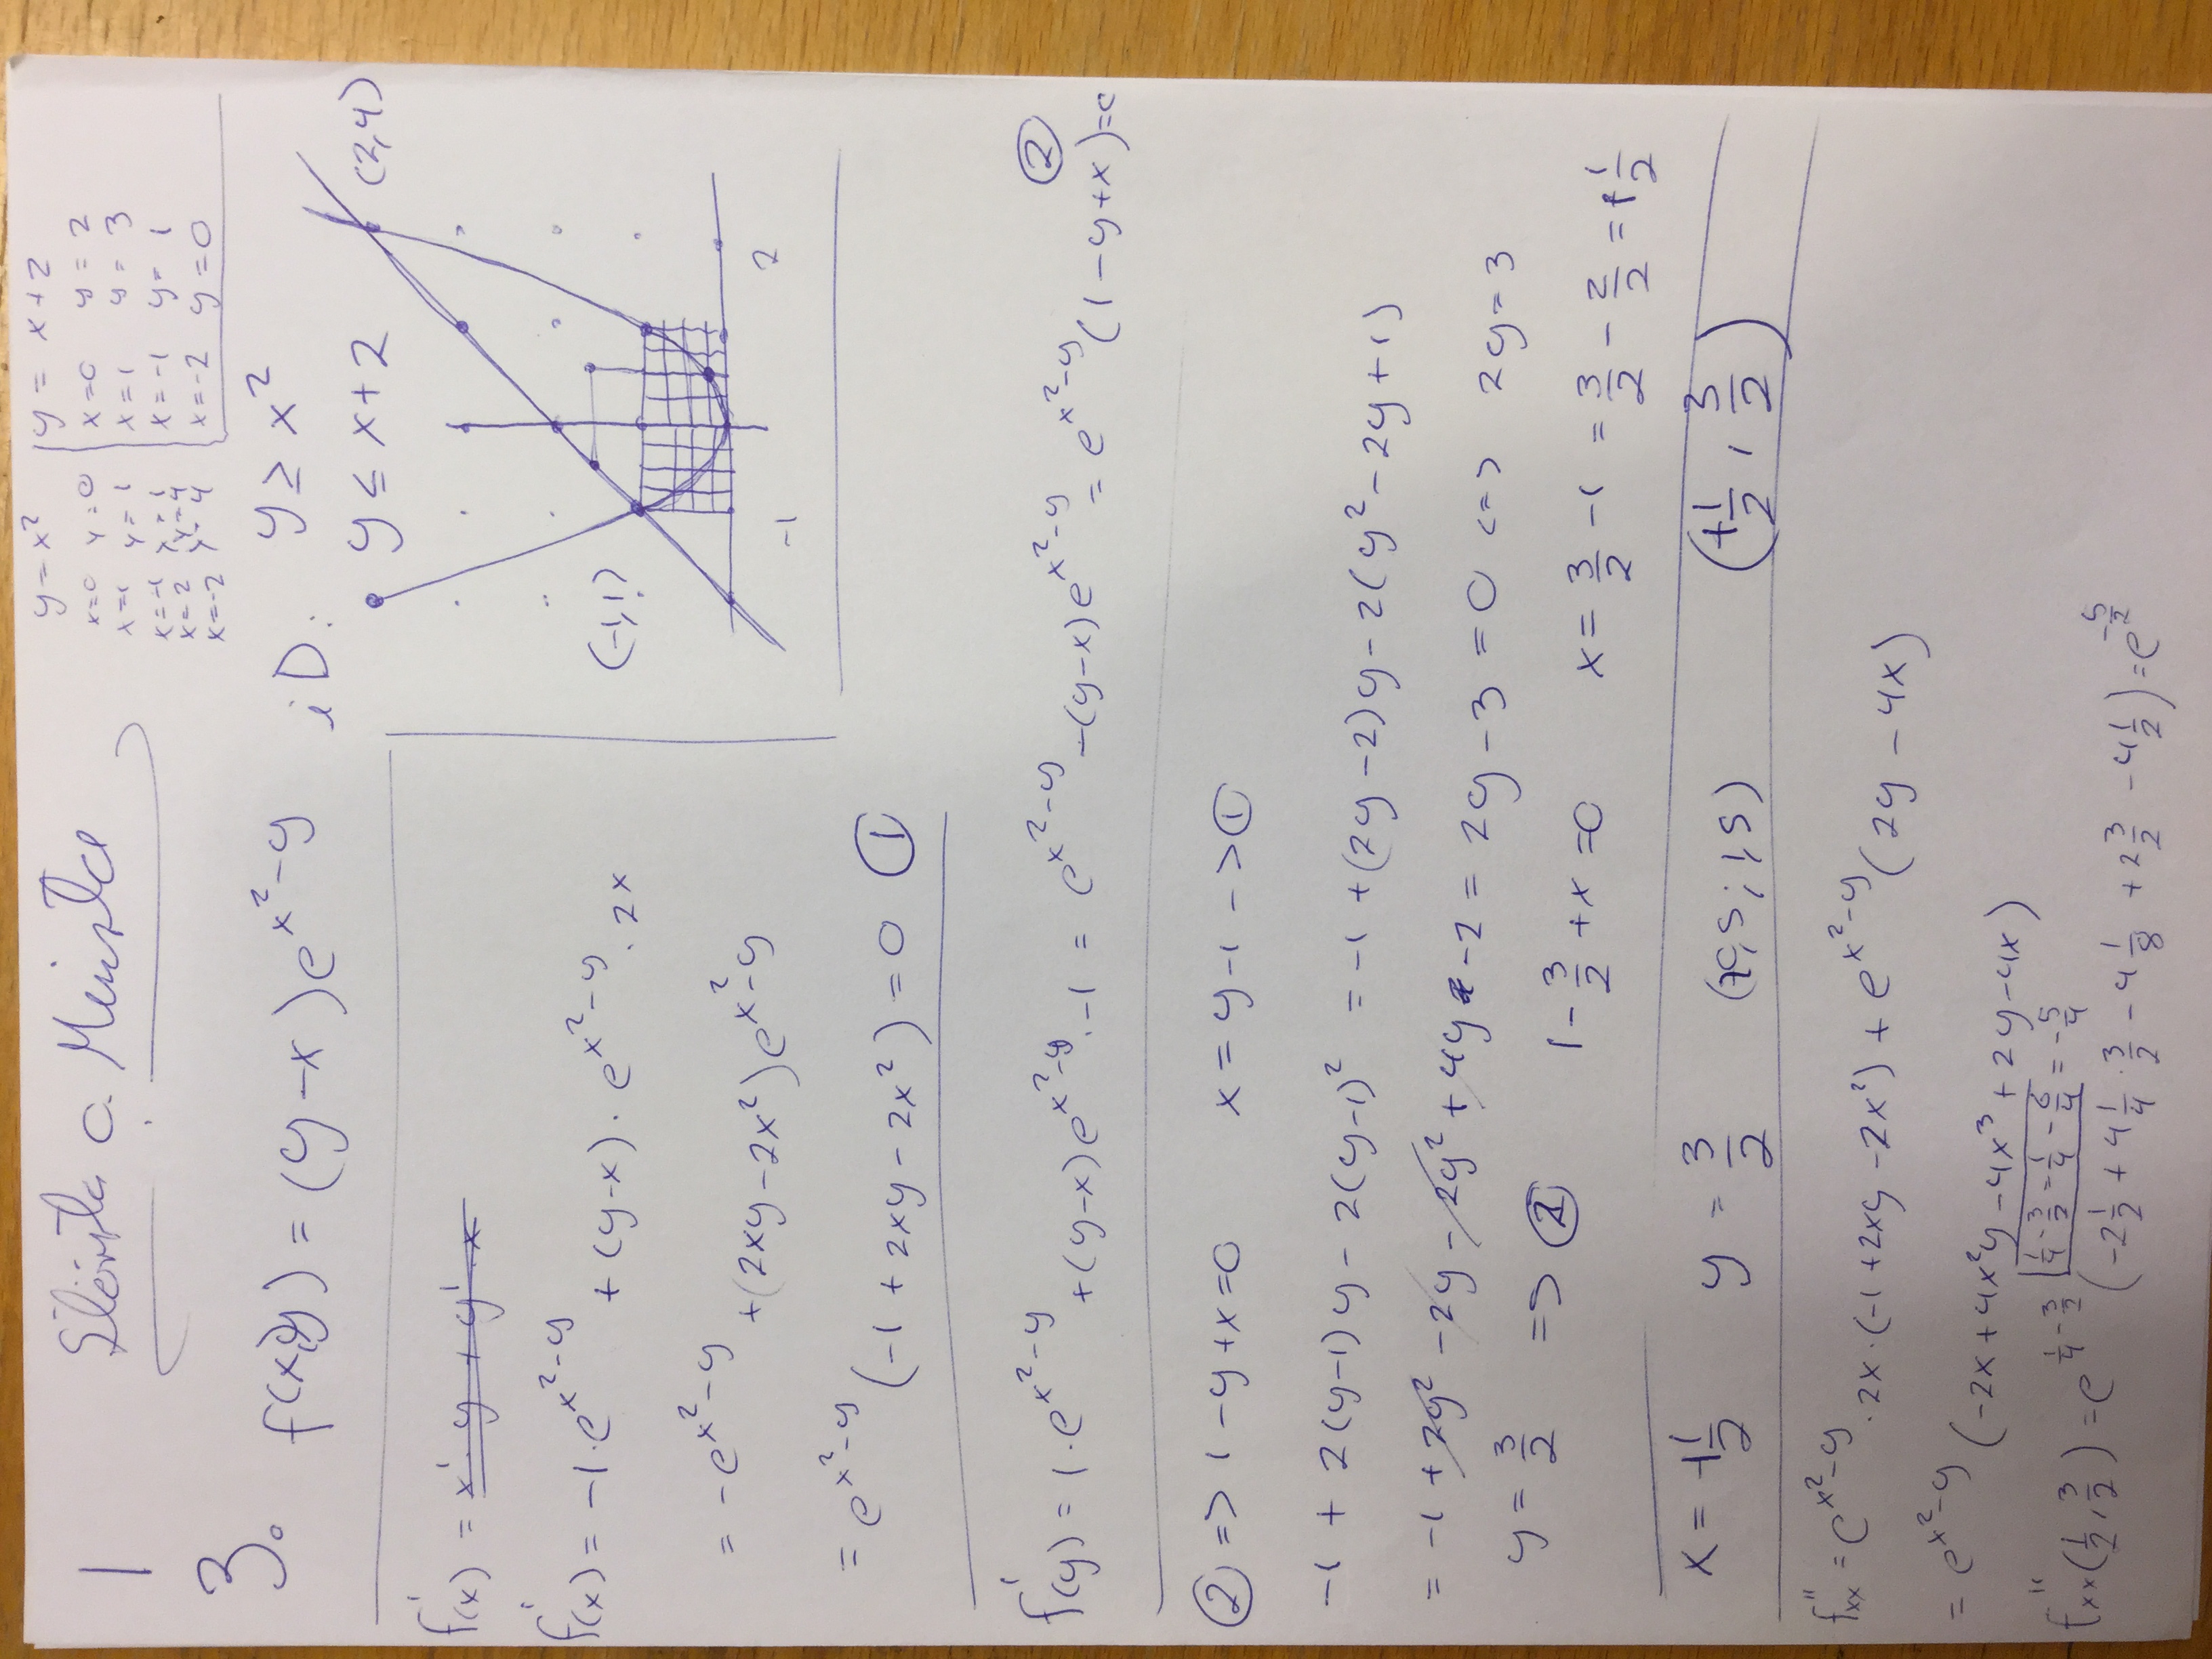 1
Största o. Minsta
y = x²
x=0 y=0
x=1 y=1
x=-1 y=1
x=2 y=4
x=-2 y=4
y = x+2
x=0 y=2
x=1 y=3
x=-1 y=1
x=-2 y=0
3.
f(x,y) = (y-x)e^(x²-y) i D: y ≥ x²
y ≤ x+2
(2,4)
(-1,1)
-1 2
f'(x) = x'·y + y'·x
f'(x) = -1·e^(x²-y) + (y-x)·e^(x²-y)·2x
= -e^(x²-y) + (2xy-2x²)e^(x²-y)
= e^(x²-y) (-1+2xy-2x²) = 0 ①
f'(y) = 1·e^(x²-y) + (y-x)e^(x²-y)·-1 = e^(x²-y) -(y-x)e^(x²-y) = e^(x²-y) (1-y+x)=0 ②
② => 1-y+x=0 x = y-1 -> ①
-1 + 2(y-1)y - 2(y-1)² = -1 + (2y-2)y - 2(y²-2y+1)
= -1 + 2y² - 2y - 2y² + 4y - 2 = 2y - 3 = 0 <=> 2y = 3
y = 3/2 => ② 1 - 3/2 + x = 0 x = 3/2 - 1 = 3/2 - 2/2 = +1/2
x = +1/2 y = 3/2 (+0,5 ; 1,5) (+1/2 , 3/2)
f''xx = e^(x²-y)·2x·(-1+2xy-2x²) + e^(x²-y) (2y-4x)
= e^(x²-y) (-2x+4x²y-4x³+2y-4x)
1/4 - 3/2 = 1/4 - 6/4 = -5/4
f''xx(1/2, 3/2) = e^(1/4-3/2) (-2 1/2 + 4 1/4 · 3/2 - 4 1/8 + 2 3/2 - 4 1/2) = e^(-5/2)